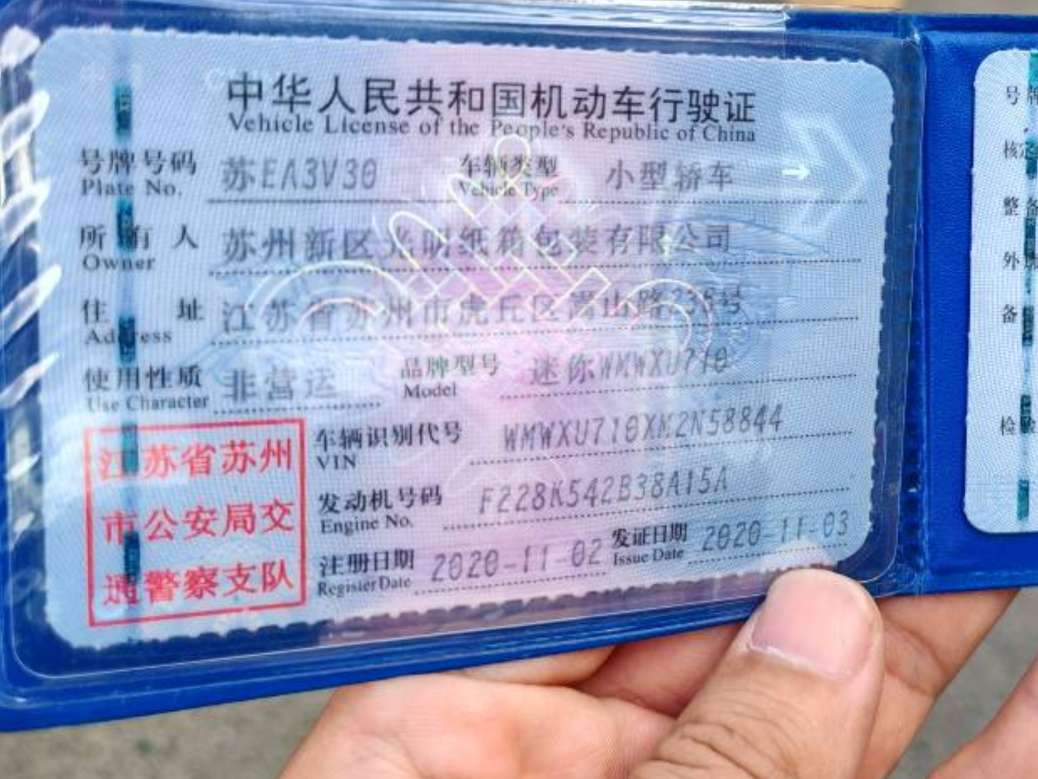 中华人民共和国机动车行驶证
Vehicle License of the People's Republic of China
号牌号码 苏EA3V30 车辆类型 小型轿车
Plate No. Vehicle Type
所有人 苏州新区光明纸箱包装有限公司
Owner
住址 江苏省苏州市虎丘区嵩山路235号
Address
使用性质 非营运 品牌型号 迷你WMWXU710
Use Character Model
车辆识别代号 WMWXU710XM2N58844
VIN
发动机号码 F228K542B38A15A
Engine No.
注册日期 2020-11-02 发证日期 2020-11-03
Register Date Issue Date
江苏省苏州
市公安局交
通警察支队
号牌
核定
整备
外
备
检验